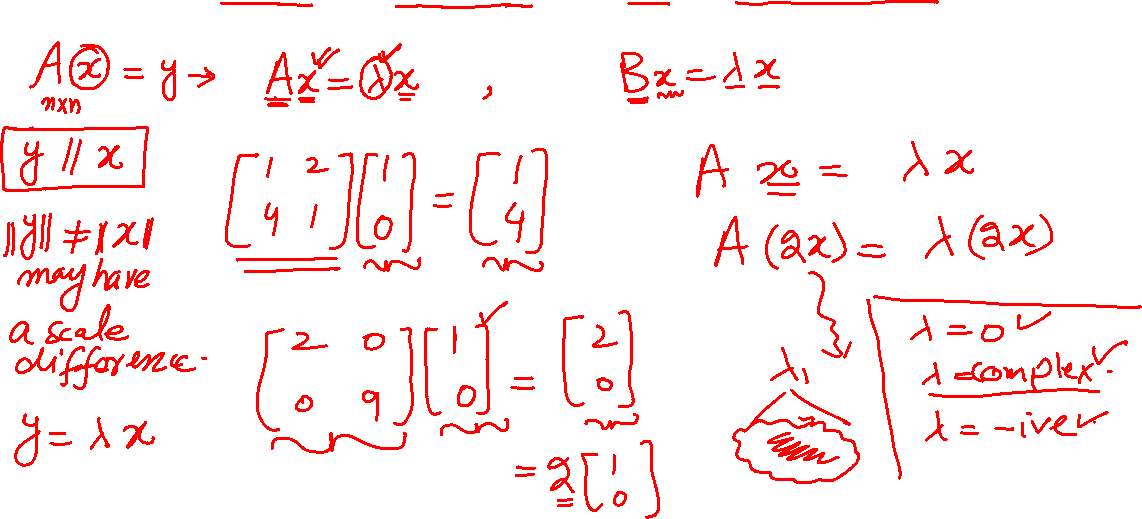 A x = y → A x = λ x , B x = λ x
n×n
y // x
||y|| ≠ ||x||
may have
a scale
difference.
y = λ x
[1 2; 4 1] [1; 0] = [1; 4]
[2 0; 0 9] [1; 0] = [2; 0]
= 2 [1; 0]
A x = λ x
A (2x) = λ (2x)
λ1
λ = 0 ✓
λ = complex ✓.
λ = -ive ✓